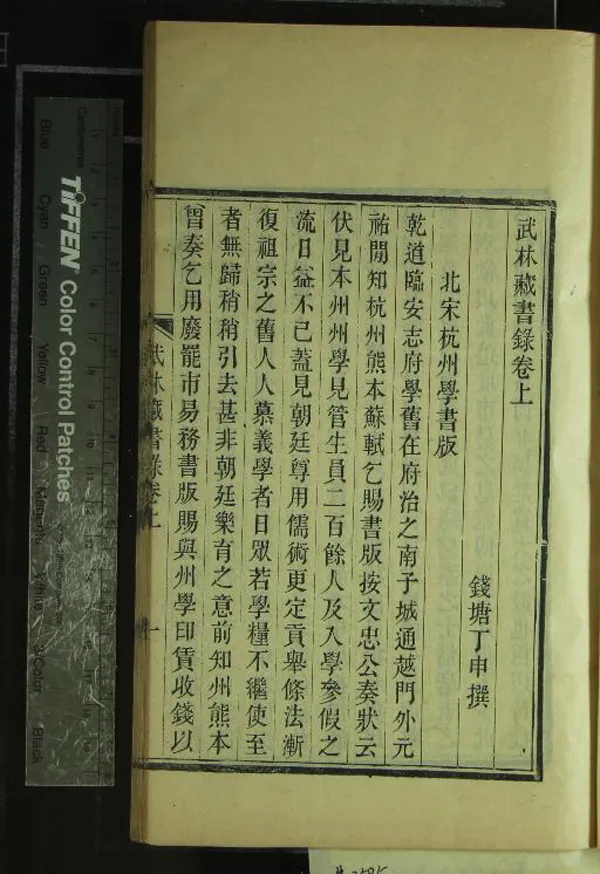 武林藏書錄卷上
錢塘丁申撰
北宋杭州學書版
乾道臨安志府學舊在府治之南子城通越門外元
祐閒知杭州熊本蘇軾乞賜書版按文忠公奏狀云
伏見本州州學見管生員二百餘人及入學參假之
流日益不已蓋見朝廷尊用儒術更定貢舉條法漸
復祖宗之舊人人慕義學者日眾若學糧不繼使至
者無歸稍稍引去甚非朝廷樂育之意前知州熊本
曾奏乞用廢罷市易務書版賜與州學印賃收錢以
武林藏書錄卷上
一
TIFFEN Color Control Patches
Blue
Cyan
Green
Yellow
Red
Magenta
White
3/Color
Black
Centimetres